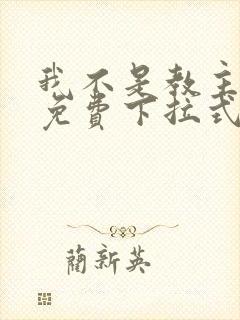 我不是教主
免費下拉式
蘭新英